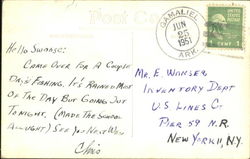 Post Card
GAMALIEL
JUN
25
1957
ARK.
1 CENT 1
Hello Swanse:
Came over for a couple
days fishing. It's rained most
of the day but going out
tonight. (Made the school
all right) See you next week
Chris
Mr. E. Wanser
Inventory Dept
U.S. Lines Co
Pier 59 N.R.
New York 11, N.Y.